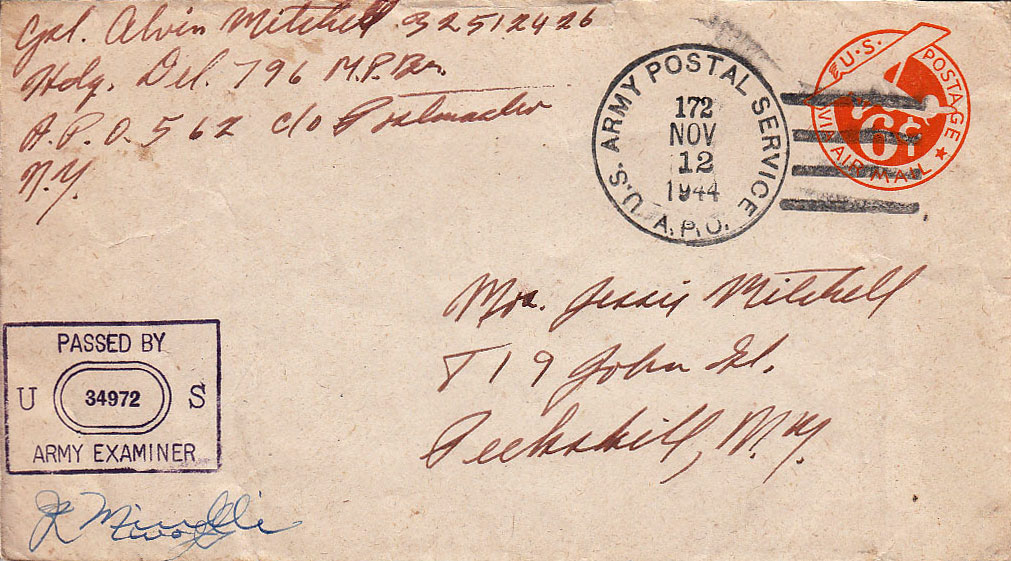 Cpl. Alvin Mitchell 32512426
Hdq. Det. 796 M.P. Bn.
A.P.O. 562 c/o Postmaster
N.Y.
U.S. ARMY POSTAL SERVICE
172
NOV
12
1944
A.P.O.
U.S. POSTAGE
6¢
VIA AIR MAIL
Mrs. Jessie Mitchell
719 John St.
Peekskill, N.Y.
PASSED BY
U 34972 S
ARMY EXAMINER